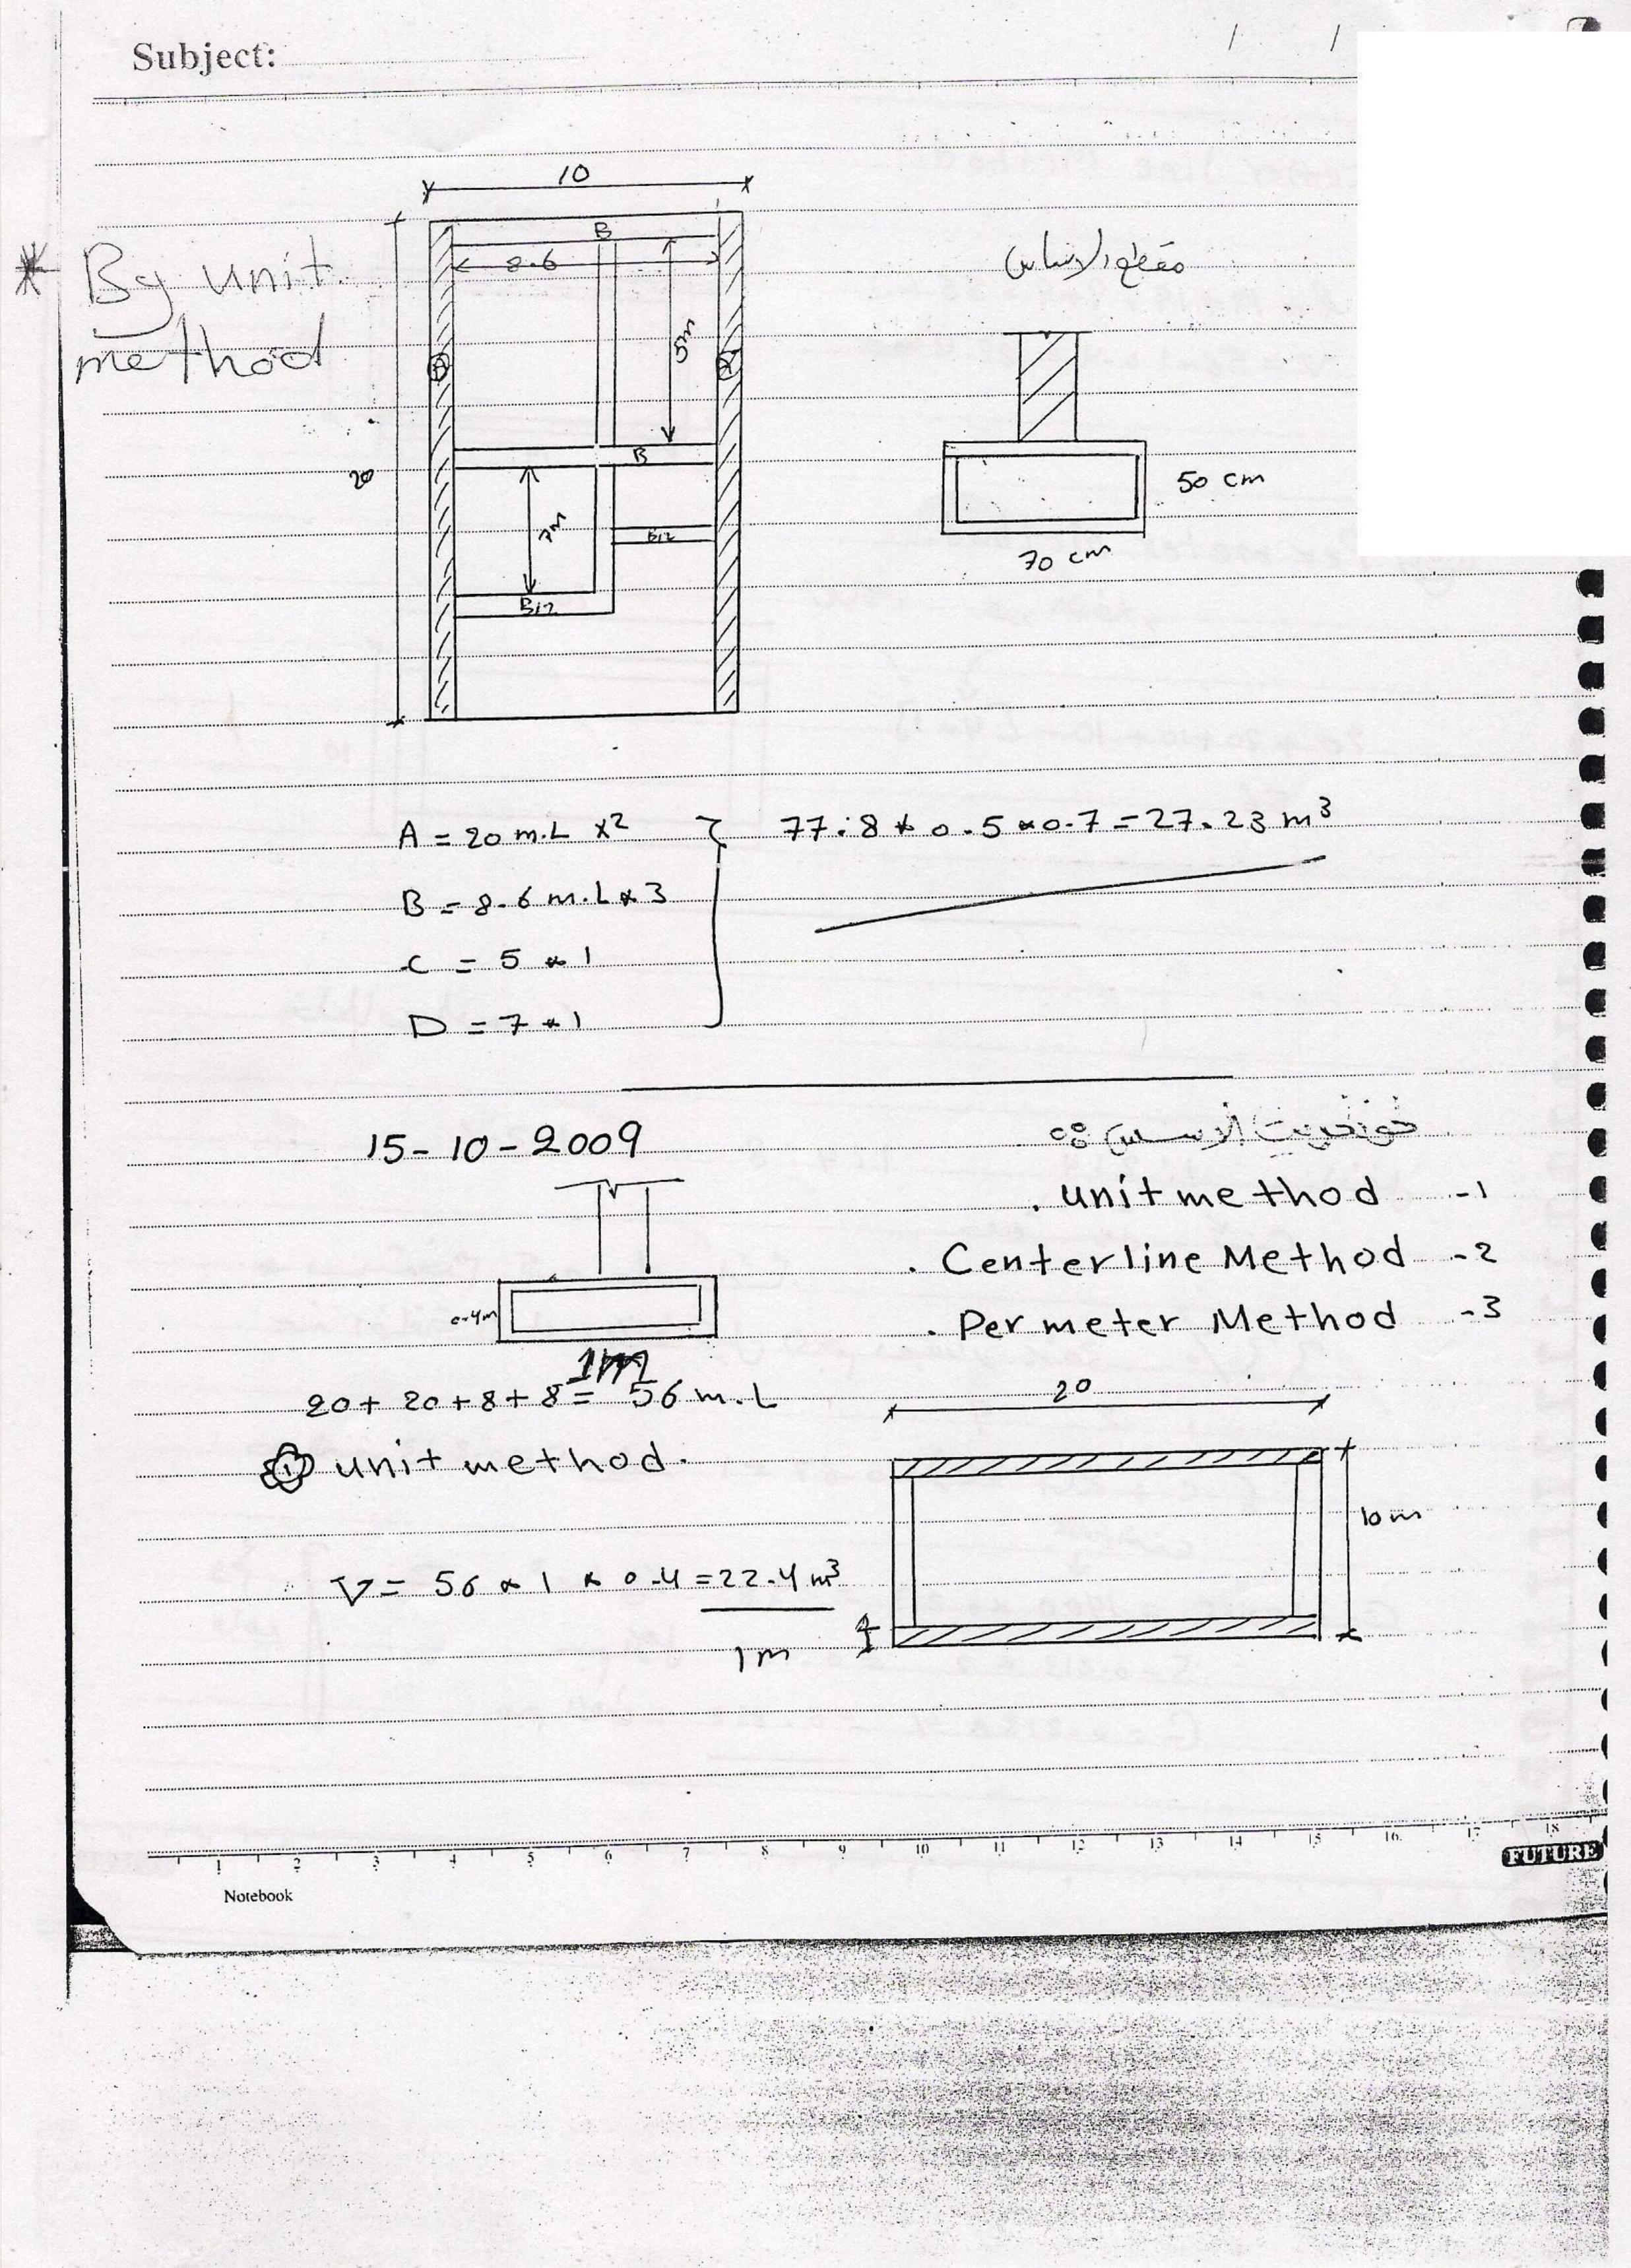 Subject:
/ /
10
* By unit
method
B
8.6
5m
A
A
20
B
7m
B/2
B/2
مقطع الاساس
50 cm
70 cm
A = 20 m.L x2
77.8 * 0.5 * 0.7 = 27.23 m³
B = 8.6 m.L * 3
C = 5 * 1
D = 7 * 1
15-10-2009
الاسس
unit method -1
. Centerline Method -2
. Per meter Method -3
0.4m
1m
20 + 20 + 8 + 8 = 56 m.L
20
① unit method.
10 m
V = 56 * 1 * 0.4 = 22.4 m³
1m
1 2 3 4 5 6 7 8 9 10 11 12 13 14 15 16 17 18
FUTURE
Notebook